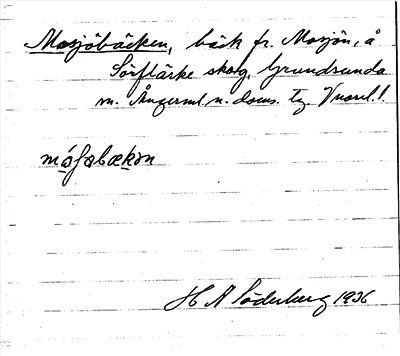 Mosjöbäcken, bäck fr. Mosjön, å
Sörflärke skog, Grundsunda
sn. Ångerml. n. doms. tg. V norrl.
H A Söderberg 1936